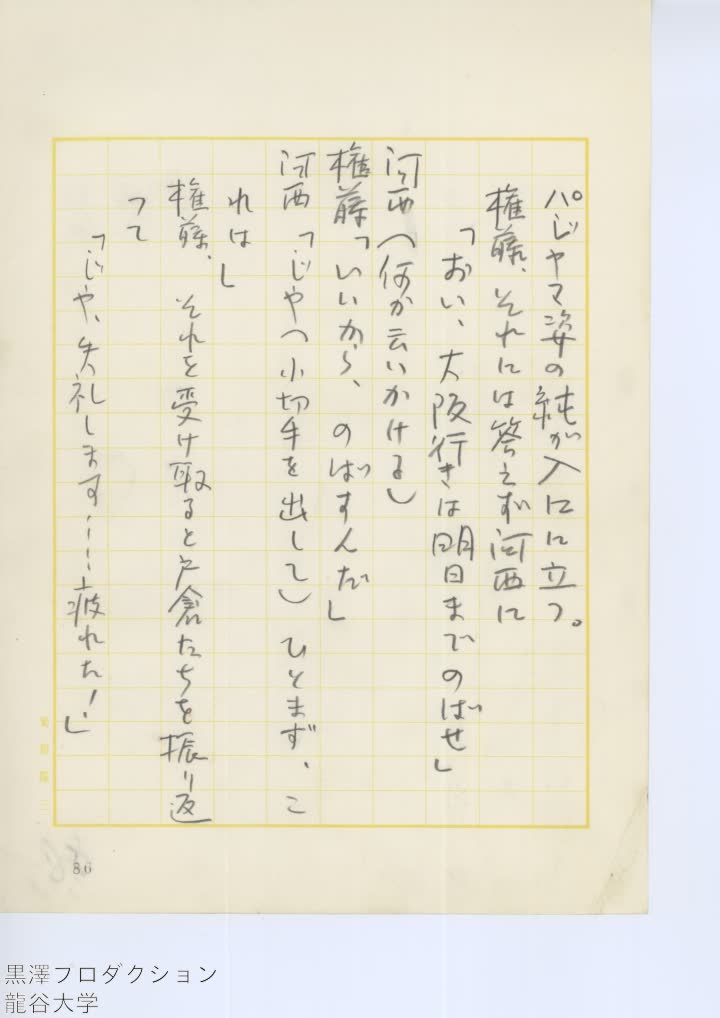 パジャマ姿の純が入口に立つ。
権藤、それには答えず河西に
「おい、大阪行きは明日までのばせ」
河西（何か云いかける）
権藤「いいから、のばすんだ」
河西「じや（小切手を出して）ひとまず、こ
れは」
権藤、それを受け取ると戸倉たちを振り返
って
「じや、失礼します……疲れた！」
86
黒澤プロダクション
龍谷大学